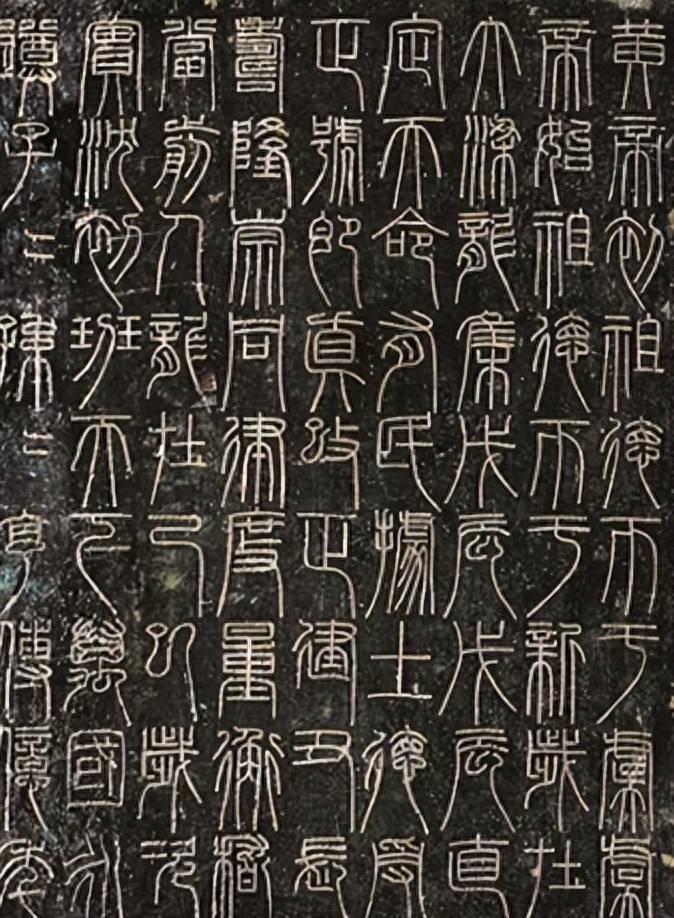 黄帝初祖德帀于虞虞
帝始祖德帀于新歲在
大梁龍集戊辰戊辰直
定天命有民據土德受
正號即真改正建丑長
壽隆崇同律度量衡稽
當前人龍在己巳歲次
實沈初班天下萬國永
遵子二孫二享傳億年